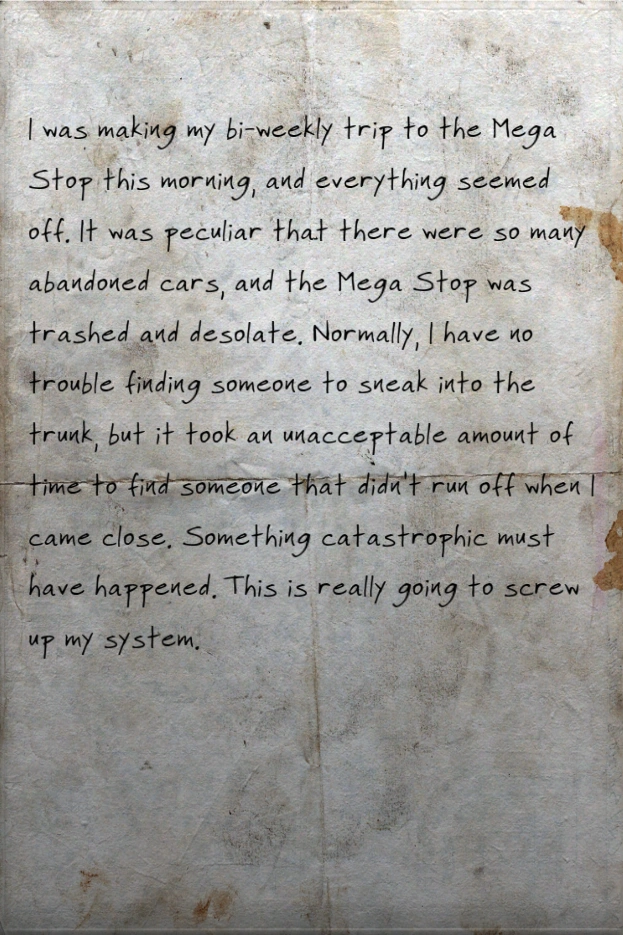 I was making my bi-weekly trip to the Mega
Stop this morning, and everything seemed
off. It was peculiar that there were so many
abandoned cars, and the Mega Stop was
trashed and desolate. Normally, I have no
trouble finding someone to sneak into the
trunk, but it took an unacceptable amount of
time to find someone that didn't run off when I
came close. Something catastrophic must
have happened. This is really going to screw
up my system.